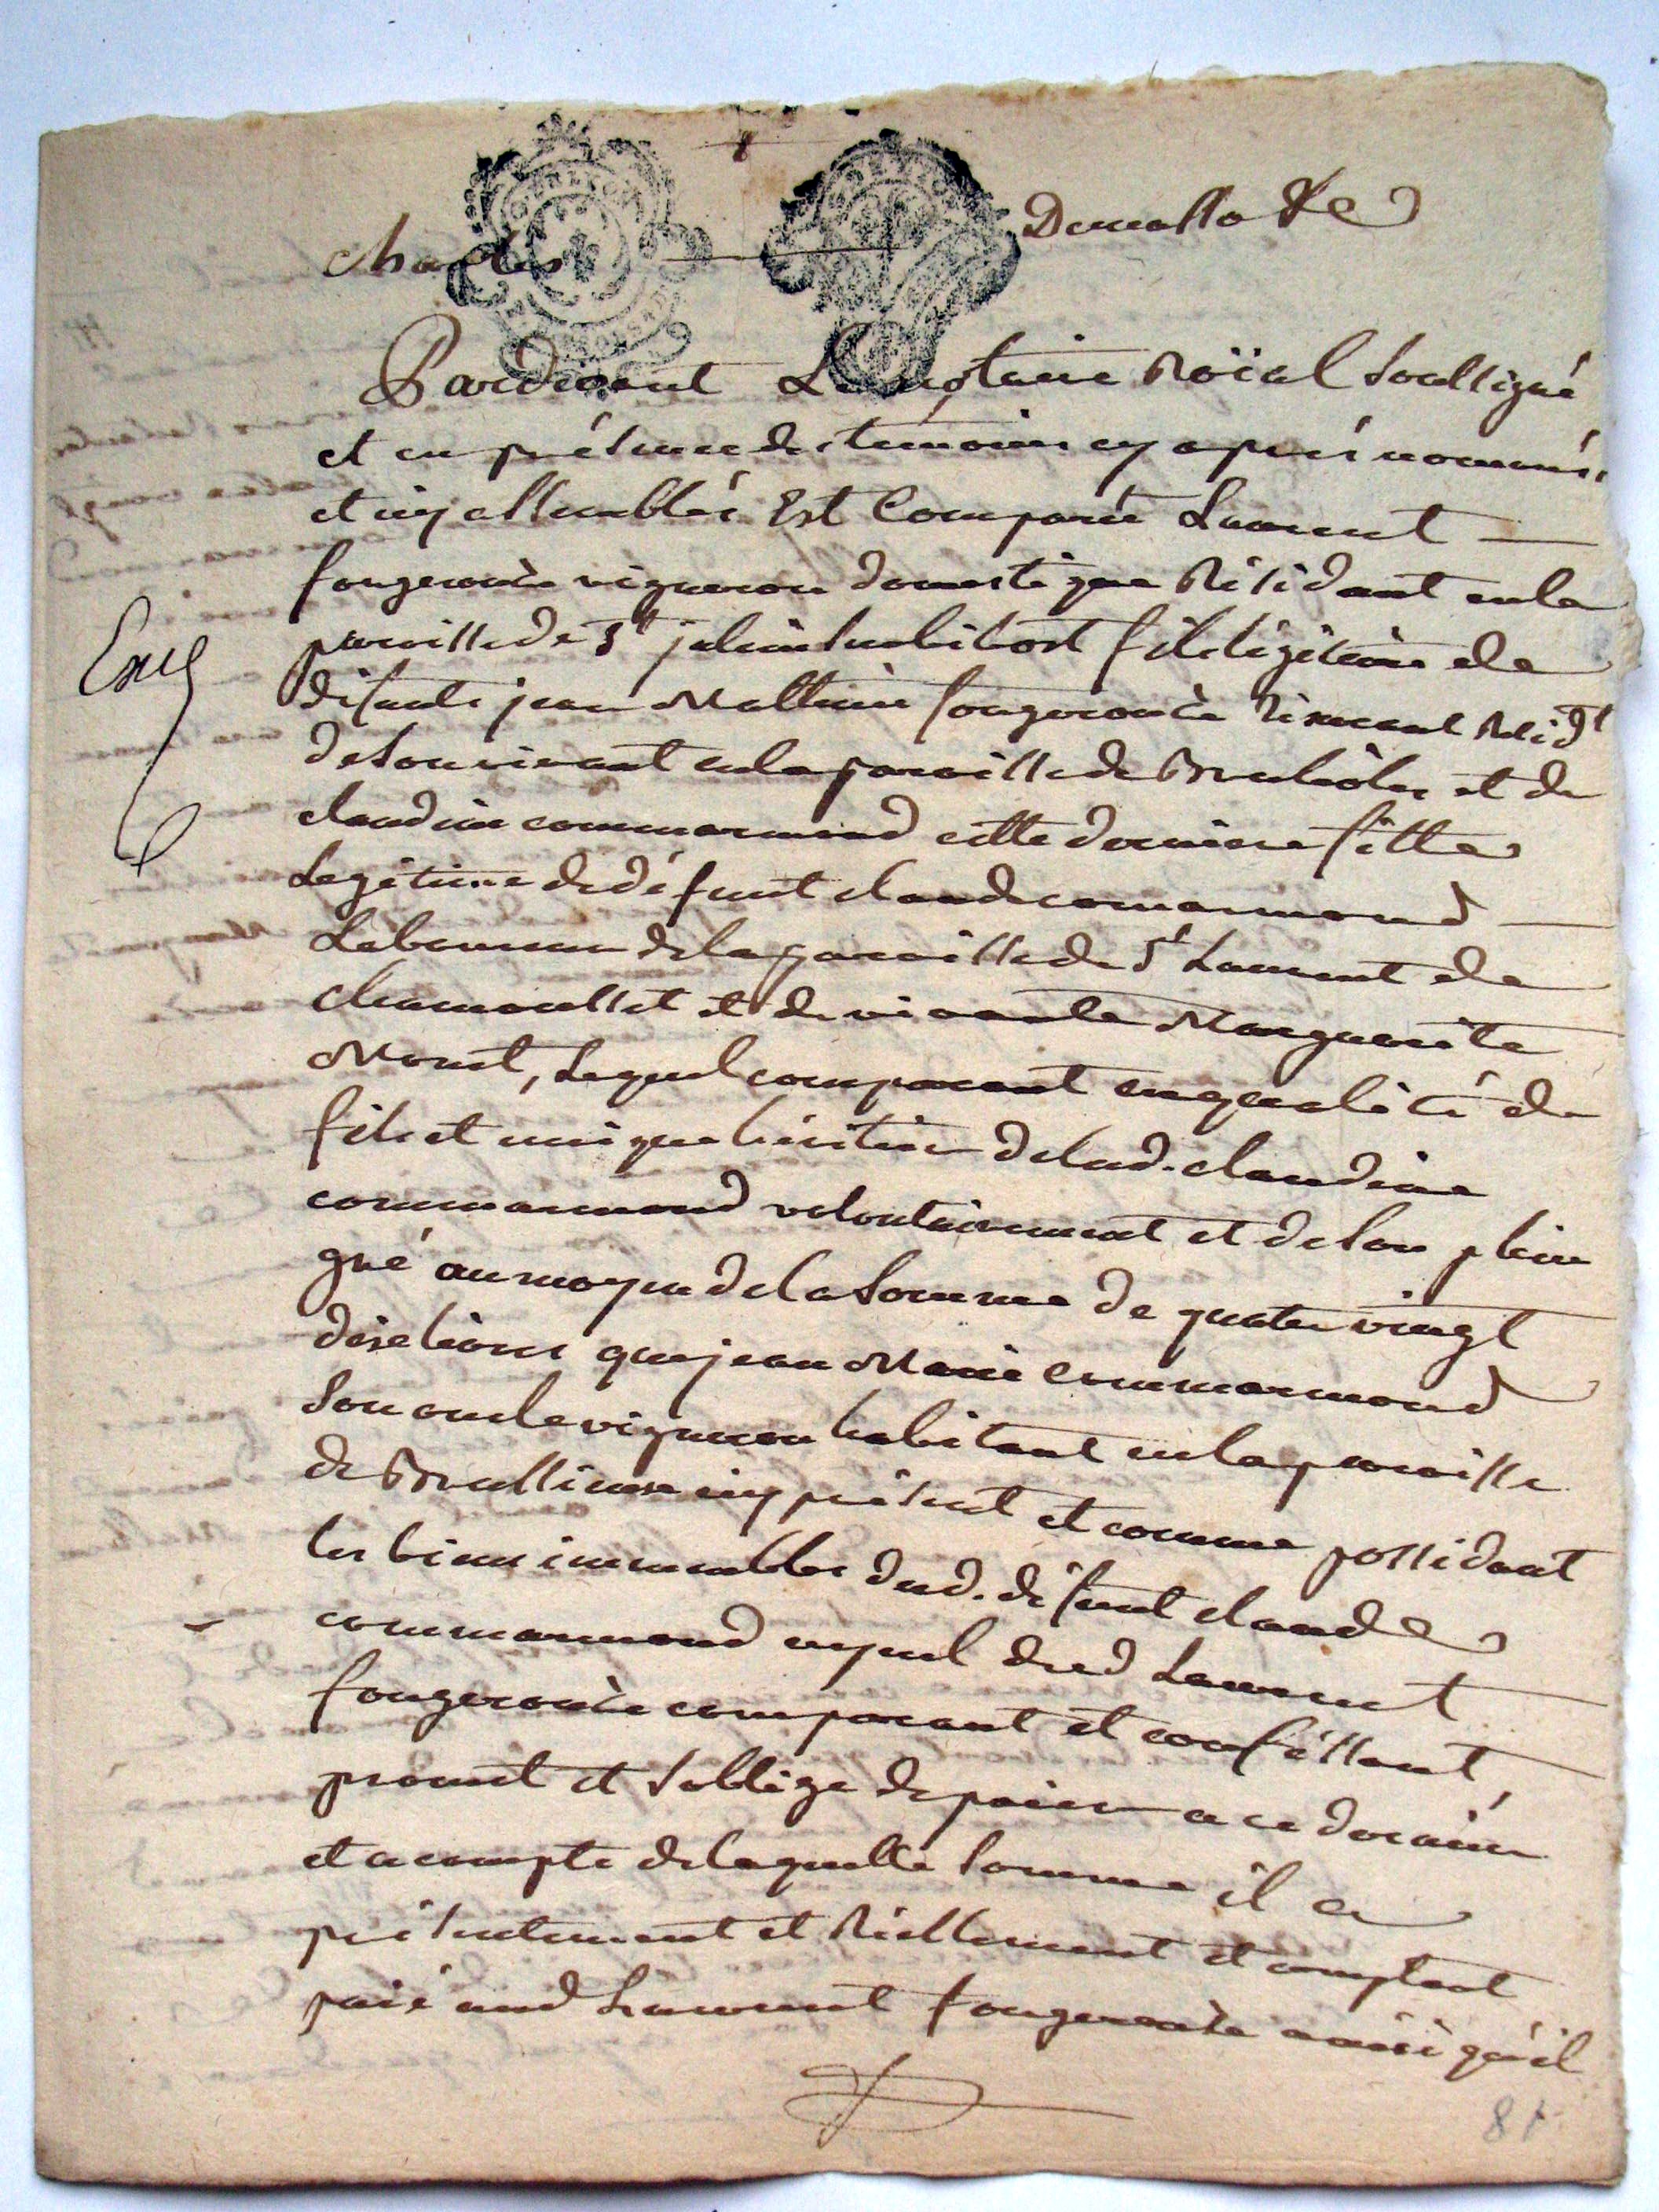 Pardevant Le notaire Roïal Soussigné
et en présence des temoins cy aprés nommés
et icy assemblés Est Comparu Laurent
fougerouse vigneron domestique Résidant en la
paroisse de St julien sur bibost fils légitime de
défunts jean Mathieu fougerouse Résid
de son vivant en la paroisse de Brulioles et de
claudine commarmond cette derniere fille
Legitime de défunt claude comarmond
Laboureur de la paroisse de St Laurent de
chamousset et de vivante Marguerite
, Lequel comparant en qualité de
fils et unique héritier de lad. claudine
commarmond volontairement et de son plein
gré au moyen de la Somme de quatre vingt
dix livres que jean Marie Commarmond
Son oncle vigneron habitant en la paroisse
de Brussieux icy présent et comme possédant
les biens immeubles dud. défunt claude
commarmond ayeul dud Laurent
fougerouse comparant et confessant,
promet et Soblige de paier a ce dernier
et a compte de laquelle Somme il a
présentement et Réellement et comptant
paié aud Laurent fougerouse ainsi qu'il
81